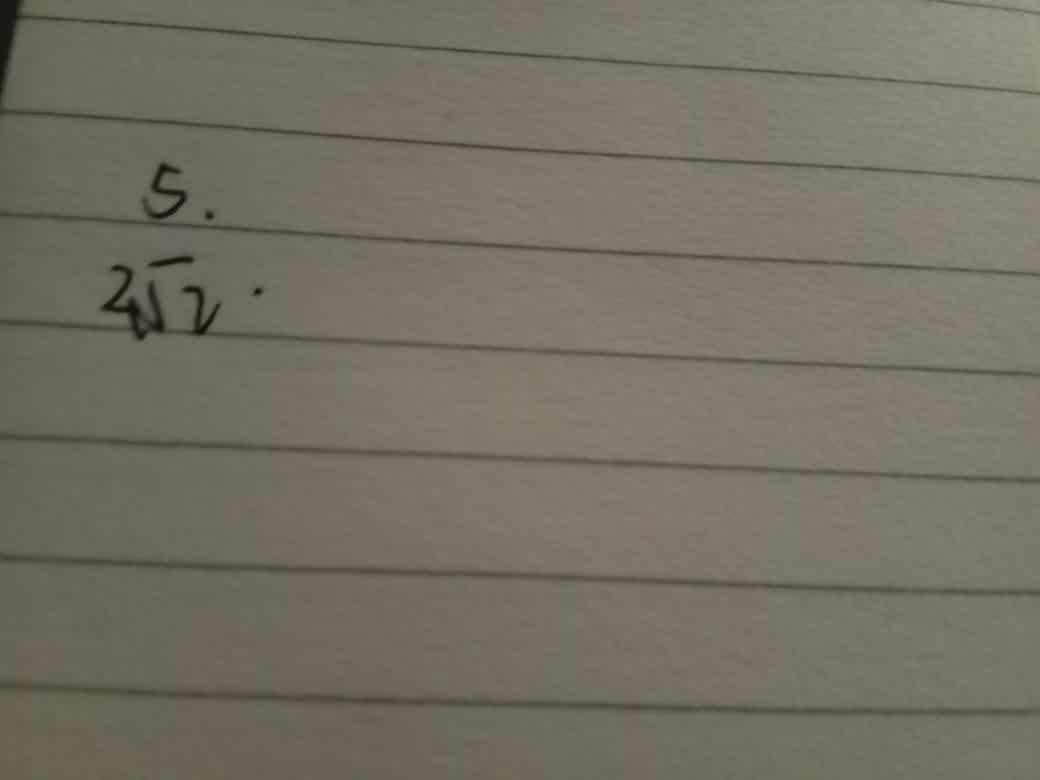 5.
2√2.